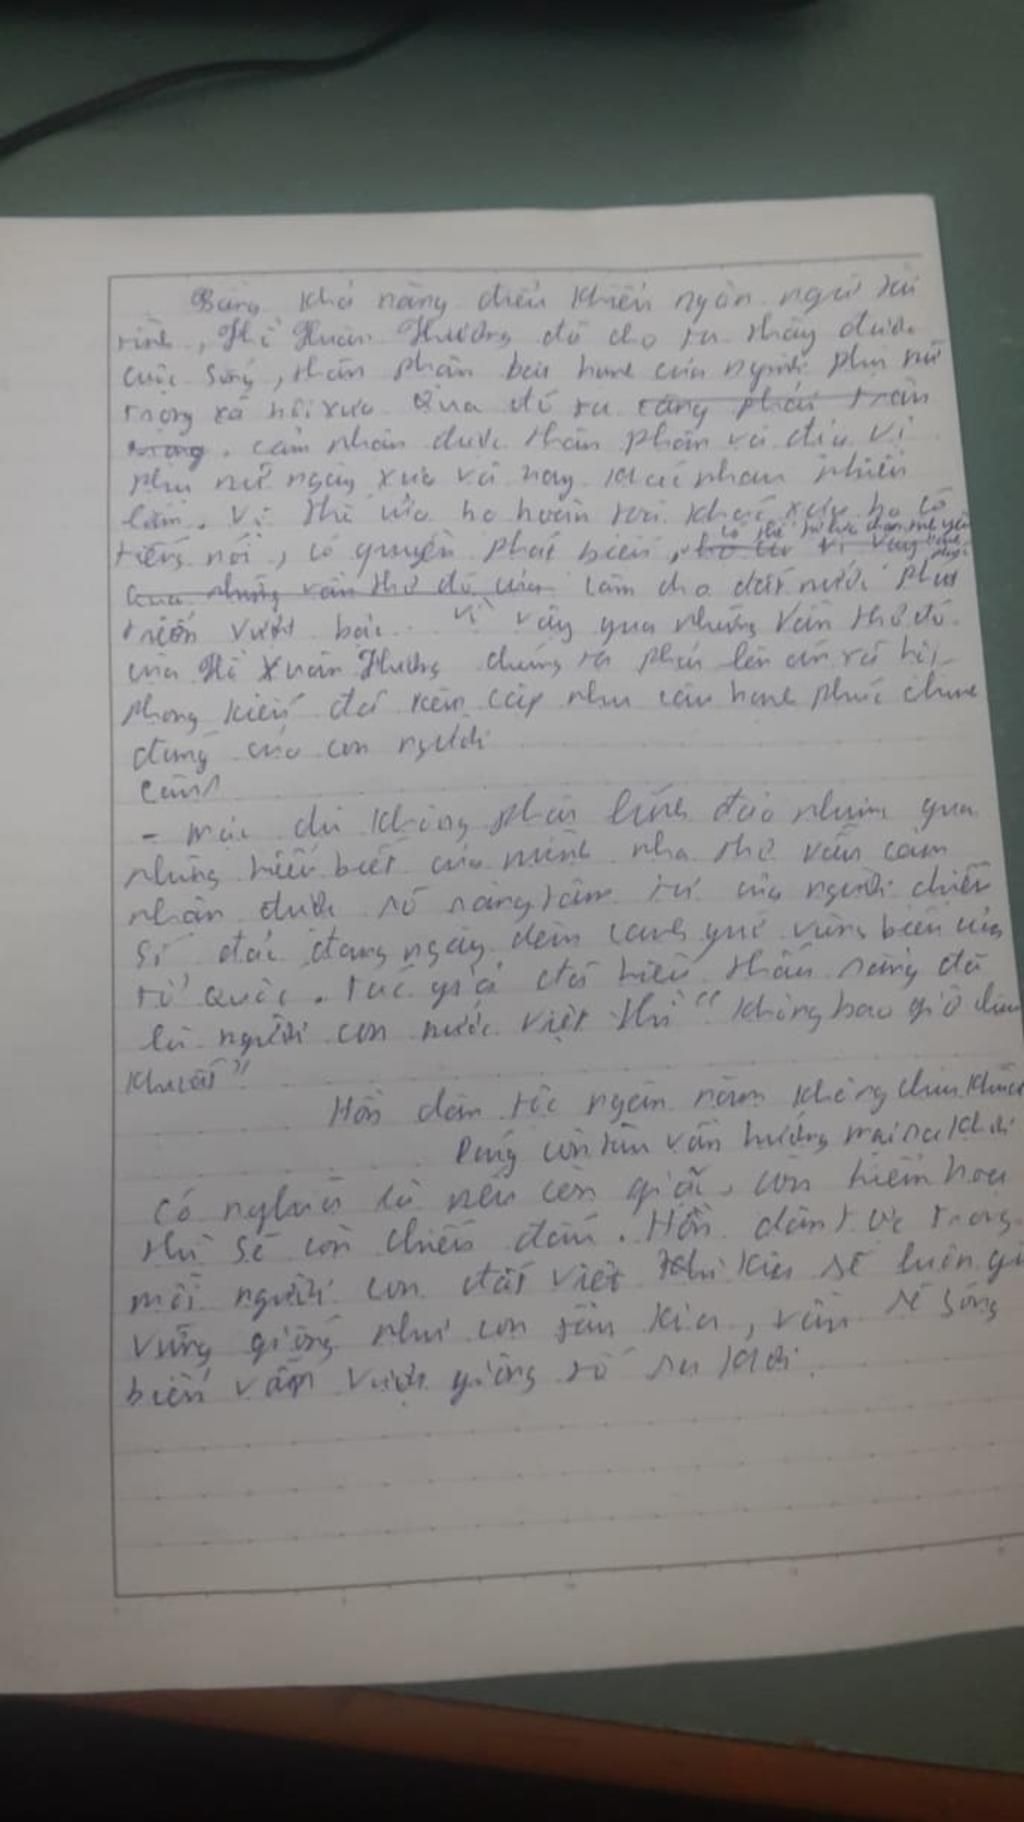 Bằng khả năng điều khiển ngôn ngữ tài
tình, Hồ Xuân Hương đã cho ta thấy được
cuộc sống, thân phận bạc hạnh của người phụ nữ
trong xã hội xưa. Qua đó ta càng phải trân
trọng. cảm nhận được thân phận và địa vị
phụ nữ ngày xưa và nay khác nhau nhiều
lắm. Vị thế của họ hoàn toàn khác xưa họ có
tiếng nói, có quyền phát biểu,
qua những vần thơ đó của làm cho đất nước phát
triển vượt bậc. Vì vậy qua những vần thơ đó
của Hồ Xuân Hương chúng ta phải lên án xã hội
phong kiến đã rẻ cấp nhu cầu hạnh phúc chính
đáng của con người
- Mặc dù không phải lính đảo nhưng qua
những hiểu biết của mình nhà thơ vẫn cảm
nhận được rõ ràng tâm tư của người chiến
sĩ đảo đang ngày đêm canh giữ vùng biển của
tổ quốc. Tác giả đã hiểu thấu rằng đã
là người con nước Việt thì "không bao giờ chịu
khuất"
Hồn dân tộc ngàn năm không chịu khuất
Dáng con tàu vẫn hướng mãi ra khơi
Có nghĩa là nếu còn giặc, còn hiểm họa
thì sẽ còn chiến đấu. Hồn dân tộc trong
mỗi người con đất Việt khi kia sẽ luôn gi
vững giống như con tàu kia, vẫn rẽ sóng
biển vẫn vượt giông tố ra khơi.